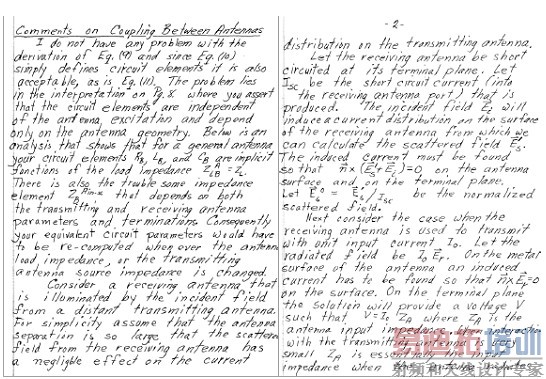 Comments on Coupling Between Antennas
I do not have any problem with the
derivation of Eq. (9) and since Eq. (10)
simply defines circuit elements it is also
acceptable, as is Eq. (11). The problem lies
in the interpretation on Pg. 8 where you assert
that the circuit elements are independent
of the antenna, excitation and depend
only on the antenna geometry. Below is an
analysis that shows that for a general antenna
your circuit elements R_B, L_B, and C_B are implicit
functions of the load impedance
There is also the trouble some impedance
element that depends on both
the transmitting and receiving antenna
parameters and terminations Consequently
your equivalent circuit parameters would have
to be re-computed when ever the antenna
load, impedance, or the transmitting
antenna source impedance is changed.
Consider a receiving antenna that
is illuminated by the incident field
from a distant transmitting antenna.
For simplicity assume that the antenna
separation is so large that the scattered
field from the receiving antenna has
a neglible effect on the current
-2-
distribution on the transmitting antenna.
Let the receiving antenna be short
circuited at its terminal plane. Let
I_sc be the short circuit current (into
the receiving antenna port) that is
produced. The incident field E_i will
induce a current distribution on the surface
of the receiving antenna from which we
can calculate the scattered field E_s.
The induced current must be found
so that n̂x(E_i+E_s)=0 on the antenna
surface and on the terminal plane.
Let be the normalized
scattered field.
Next consider the case when the
receiving antenna is used to transmit
with input current I_0. Let the
radiated field be I_0 E_r. On the metal
surface of the antenna an induced
current has to be found so that n̂xE_r=0
on the surface. On the terminal plane
the solution will provide a voltage V
such that V=I_0 Z_A where Z_A is the
antenna input impedance. When interaction
with the transmitting antenna is very
small Z_A is essentially
impedance when the antenna
易迪拓培训
射频和天线设计专家